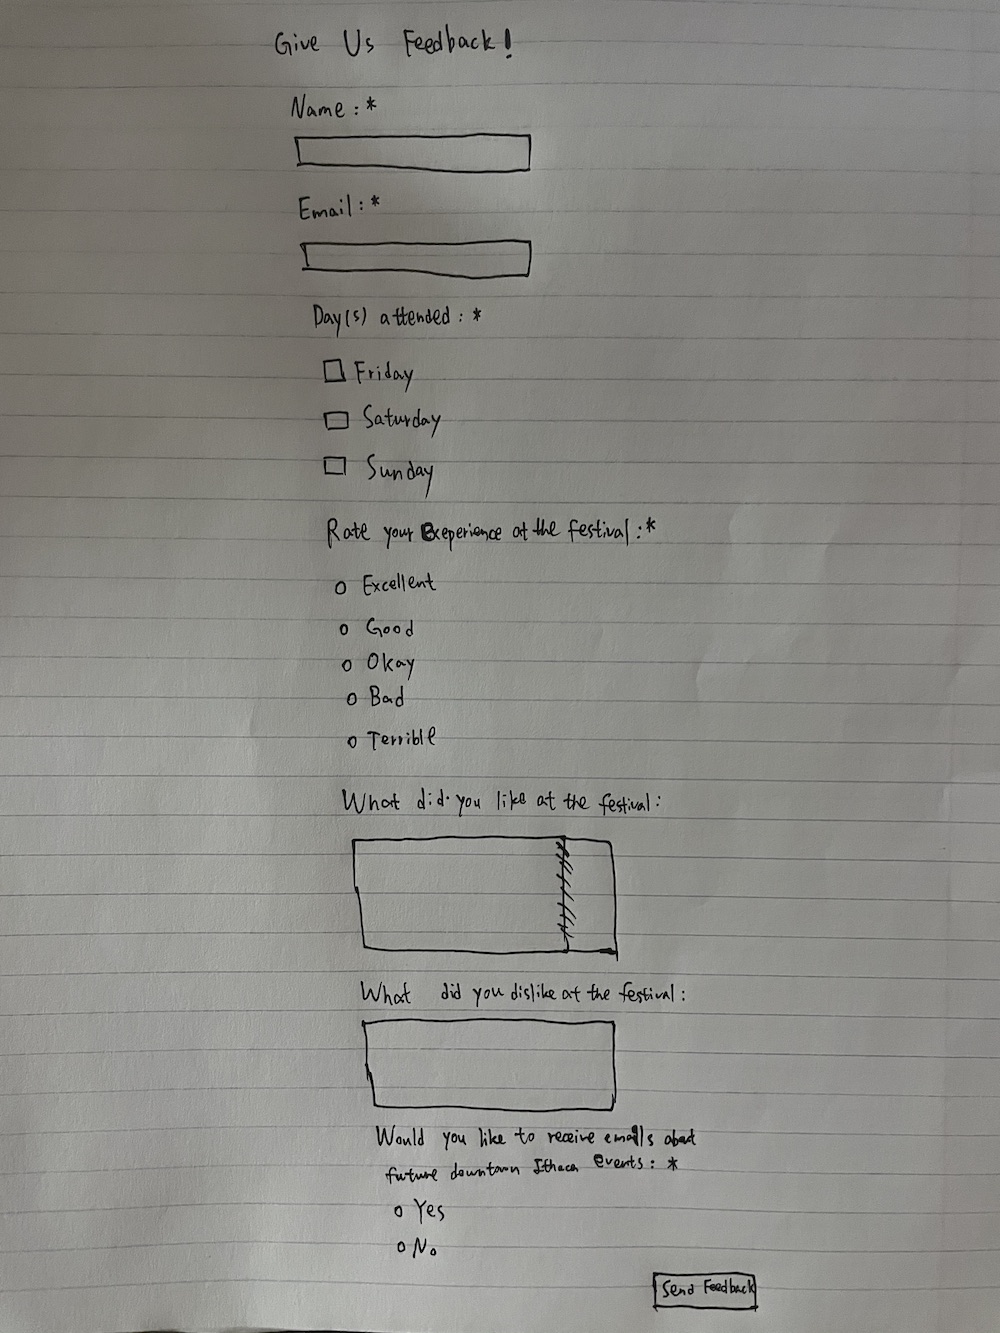 Give Us Feedback!
Name: *
Email: *
Day(s) attended: *
Friday
Saturday
Sunday
Rate your Exeperience at the festival: *
Excellent
Good
Okay
Bad
Terrible
What did you like at the festival:
What did you dislike at the festival:
Would you like to receive emails about
future downtown Ithaca events: *
Yes
No
Send Feedback